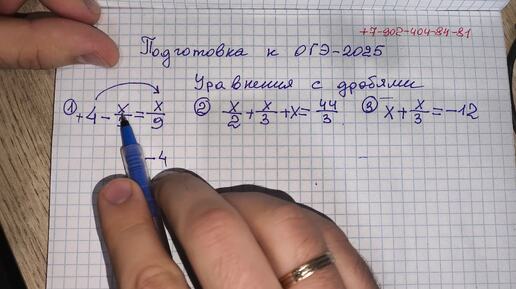 +7-902-404-84-81
Подготовка к ОГЭ-2025
Уравнения с дробями
① +4 - x/ = x/9 ② x/2 + x/3 + x = 44/3 ③ x + x/3 = -12
-4